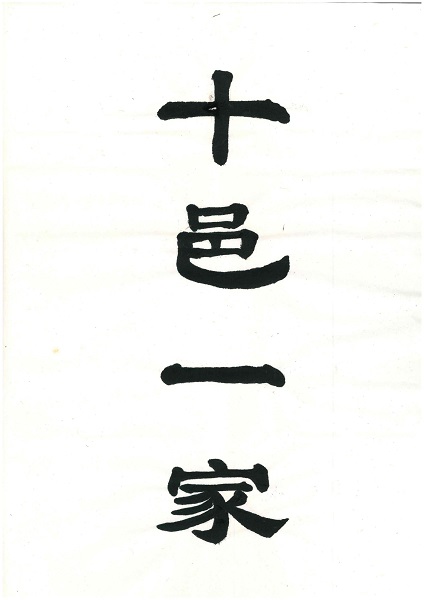 十邑一家